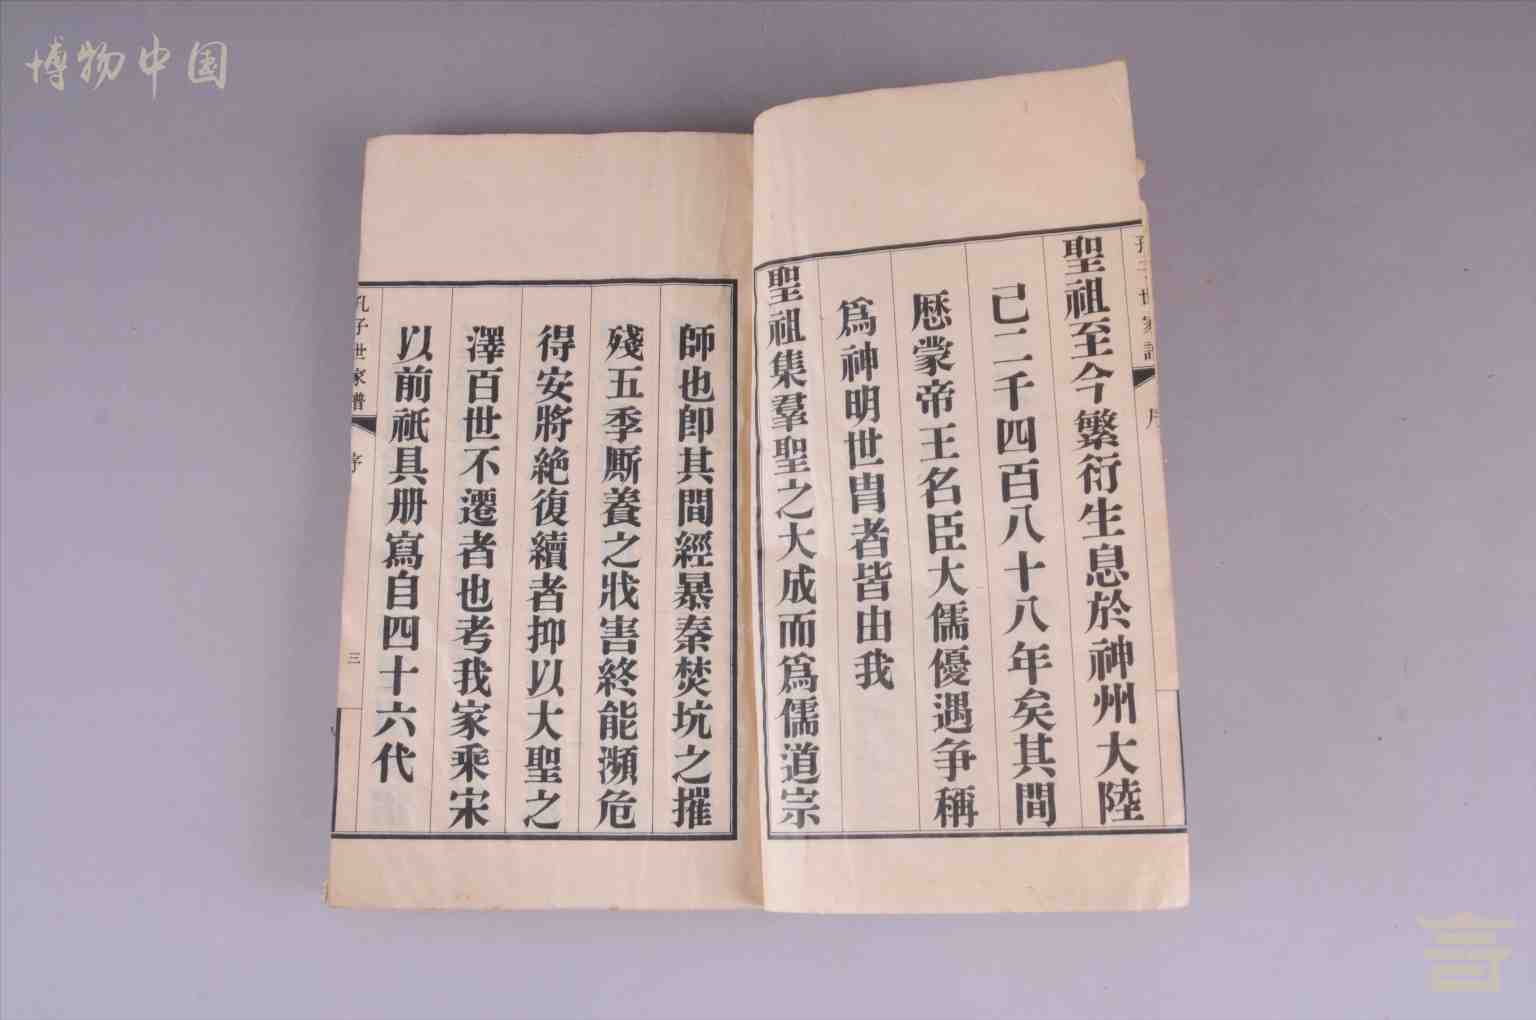 博物中国
孔子世家譜
序
聖祖至今繁衍生息於神州大陸
已二千四百八十八年矣其間
歷蒙帝王名臣大儒優遇爭稱
爲神明世胄者皆由我
聖祖集羣聖之大成而爲儒道宗
師也卽其間經暴秦焚坑之摧
殘五季厮養之戕害終能瀕危
得安將絶復續者抑以大聖之
澤百世不遷者也考我家乘宋
以前祇具册寫自四十六代
孔子世家譜
序
三
言